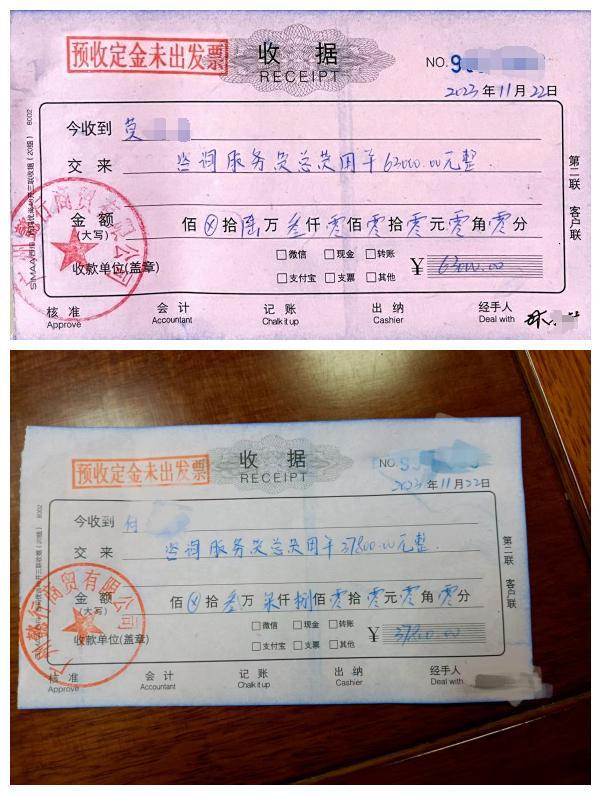 预收定金未出发票
收 据
RECEIPT
NO. 9
2023 年 11 月 22 日
今收到 莫
交 来 咨询服务费总费用￥63000.00元整.
金 额 佰 ⊗ 拾 陆 万 叁 仟 零 佰 零 拾 零 元 零 角 零 分
(大写)
收款单位(盖章)
□微信 □现金 □转账
□支付宝 □支票 □其他
¥ 63000.00
核 准 会 计 记 账 出 纳 经手人
Approve Accountant Chalk it up Cashier Deal with
第二联 客户联
商贸有限公司
预收定金未出发票
收 据
RECEIPT
NO. 9
2023 年 11 月 22 日
今收到 何
交 来 咨询服务费总费用￥37800.00元整.
金 额 佰 ⊗ 拾 叁 万 柒 仟 捌 佰 零 拾 零 元 零 角 零 分
(大写)
收款单位(盖章)
□微信 □现金 □转账
□支付宝 □支票 □其他
¥ 37800.00
核 准 会 计 记 账 出 纳 经手人
Approve Accountant Chalk it up Cashier Deal with
第二联 客户联
商贸有限公司